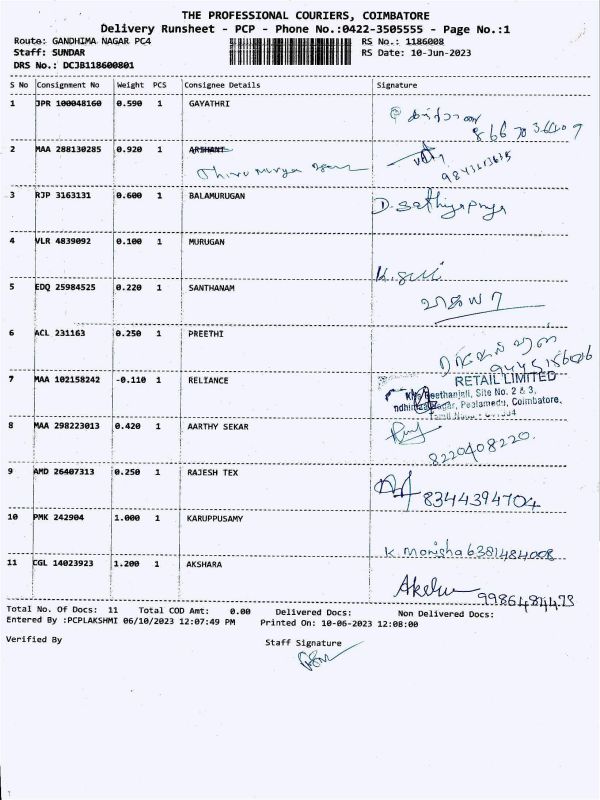 THE PROFESSIONAL COURIERS, COIMBATORE
Delivery Runsheet - PCP - Phone No.:0422-3505555 - Page No.:1
Route: GANDHIMA NAGAR PC4 RS No.: 1186008
Staff: SUNDAR RS Date: 10-Jun-2023
DRS No.: DCJB118600801
S No Consignment No Weight PCS Consignee Details Signature
1 JPR 100048160 0.590 1 GAYATHRI
2 MAA 288130285 0.920 1 ARIHANT
3 RJP 3163131 0.600 1 BALAMURUGAN
D. Sathiyapriya
4 VLR 4839092 0.100 1 MURUGAN
5 EDQ 25984525 0.220 1 SANTHANAM
6 ACL 231163 0.250 1 PREETHI
7 MAA 102158242 -0.110 1 RELIANCE
RETAIL LIMITED
Geethanjali, Site No. 2 & 3,
Peelamedu, Coimbatore,
8 MAA 298223013 0.420 1 AARTHY SEKAR
8220408220.
9 AMD 26407313 0.250 1 RAJESH TEX
8344394704
10 PMK 242904 1.000 1 KARUPPUSAMY
K. Monisha 6381484008
11 CGL 14023923 1.200 1 AKSHARA
Total No. Of Docs: 11 Total COD Amt: 0.00 Delivered Docs: Non Delivered Docs:
Entered By :PCPLAKSHMI 06/10/2023 12:07:49 PM Printed On: 10-06-2023 12:08:00
Verified By Staff Signature